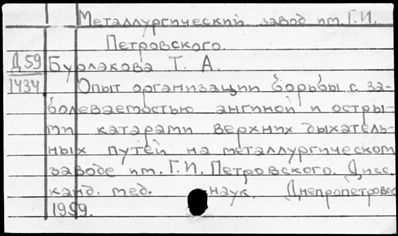 Металлургический завод им. Г.И.
Петровского.
Д 59 Бурлакова Т. А.
1434 Опыт организации борьбы с за-
болеваемостью ангиной и остры-
ми катарами верхних дыхатель-
ных путей на металлургическом
заводе им. Г.И. Петровского. Дисс.
канд. мед. наук. Днепропетровс
1959.